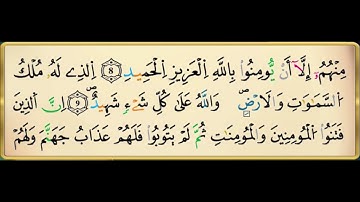 مِنْهُمُۥٓ إِلَّآ أَنْ يُّومِنُوا۟ بِاللَّهِ اِ۬لْعَزِيزِ اِ۬لْحَمِيدِ 8 اِ۬لذِے لَهُۥ مُلْكُ
اُ۬لسَّمَٰوَٰتِ وَالَارْضِۖ وَاللَّهُ عَلَىٰ كُلِّ شَےْءٖ شَهِيدٌۖ 9 اِنَّ اَ۬لذِينَ
فَتَنُوا۟ اُ۬لْمُومِنِينَ وَالْمُومِنَٰتِ ثُمَّ لَمْ يَتُوبُوا۟ فَلَهُمْ عَذَابُ جَهَنَّمَ وَلَهُمْ